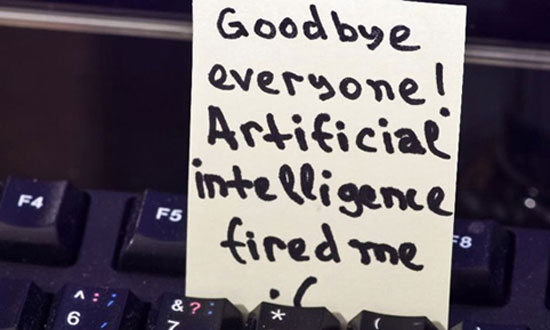 Goodbye
everyone!
Artificial
intelligence
fired me
:(
F4
F5
F8
^ : ;
6
& ? :
7
*
(